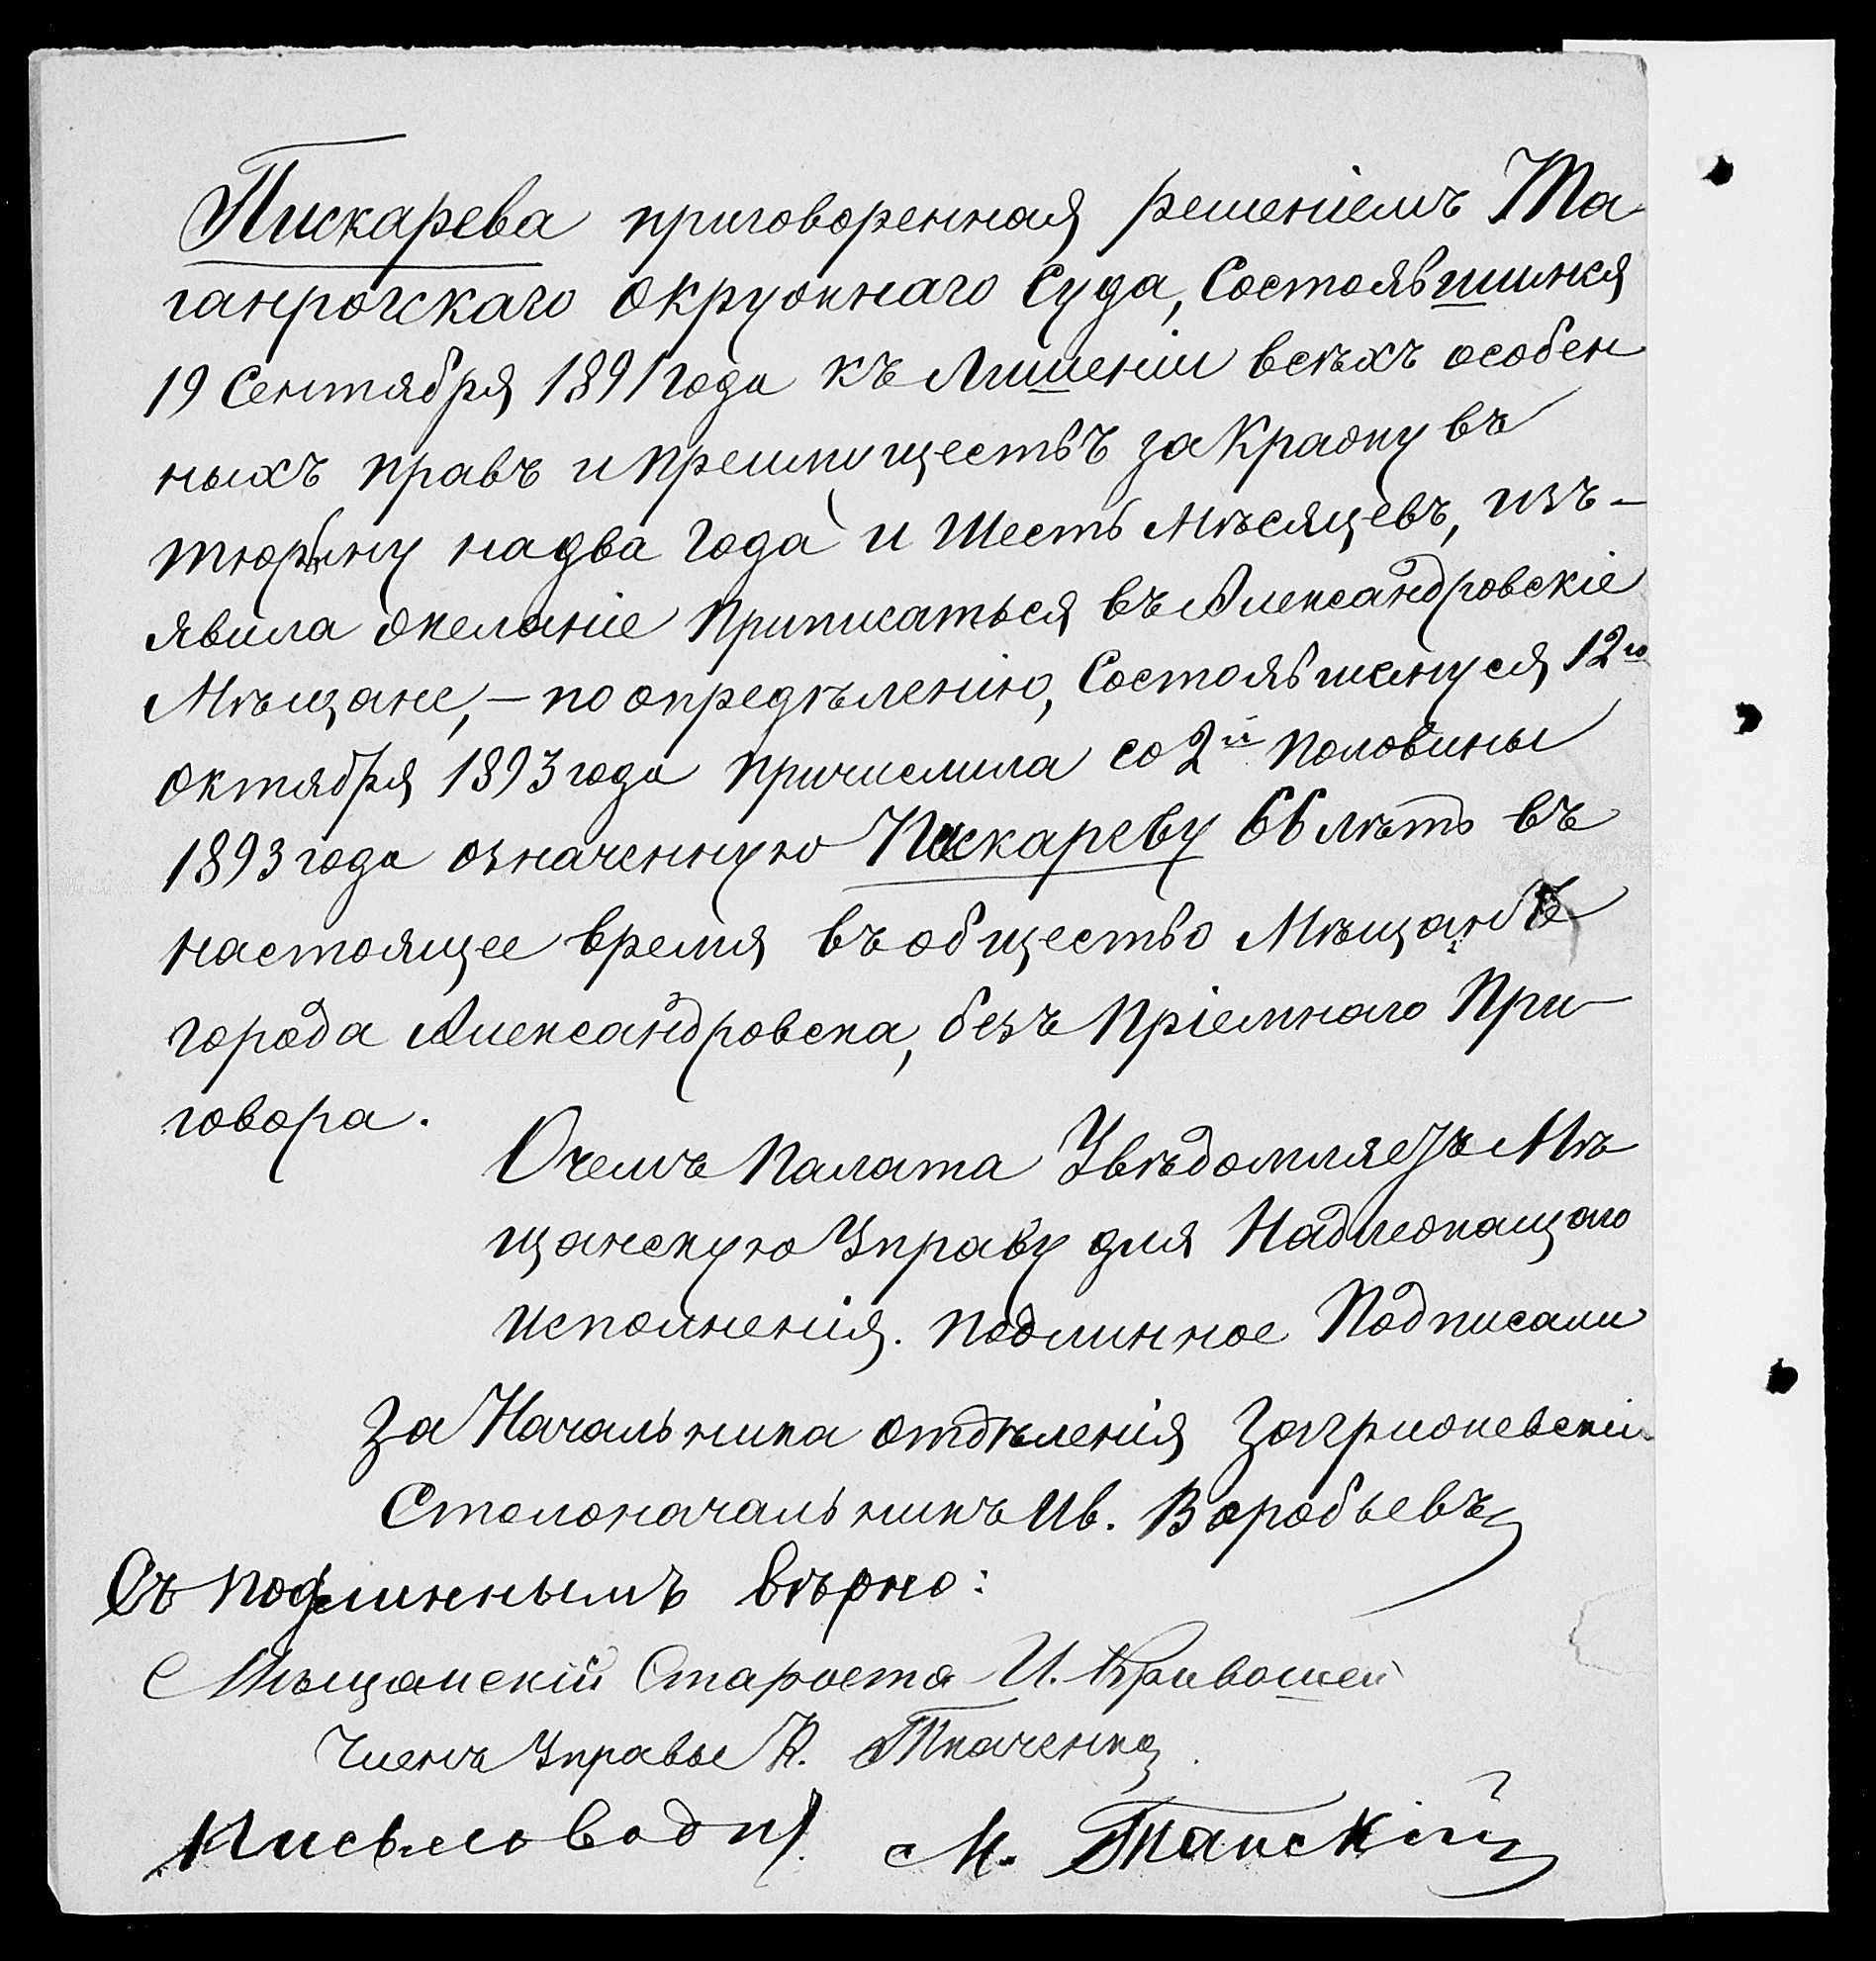 Пискарева приговоренная решеніемъ Та-
ганрогскаго Окружнаго Суда, Состоявшимся
19 Сентября 1891 года къ Лишеніи всѣхъ особен
ныхъ правъ и преимуществъ за Кражу въ
тюрьму на два года и Шесть Мѣсяцевъ, изъ-
явила желаніе приписаться въ Александровскіе
Мѣщане, – по опредѣленію, Состоявшемуся 12го
Октября 1893 года причислила со 2й половины
1893 года означенную Пискареву 66 лѣтъ въ
настоящее время въ общество Мѣщанъ
города Александровска, безъ Пріемнаго При-
говора.
О чемъ Палата Увѣдомляетъ Мѣ
щанскую Управу для Надлежащаго
исполненія. Подлинное Подписали
За Начальника отдѣленія Загржевскій
Столоначальникъ Ив. Воробьевъ
Съ подлиннымъ вѣрно:
Мѣщанскій Староста И. Кривошей
Членъ Управы К. Ткаченко
Письмовод. М.